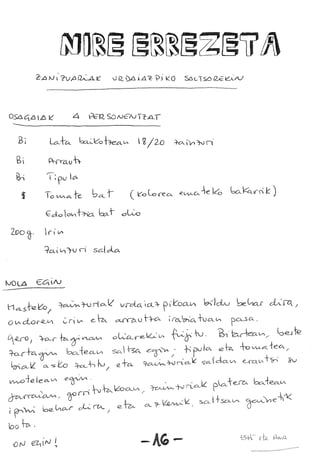 NIRE ERREZETA
ZAINZURIAK URDAIAZPIKO SALTSAREKIN
OSAGAIAK 4 PERSONENTZAT
Bi Lata bakoitzean 18/20 zainzuri
Bi Arrautz
Bi Tipula
1 Tomate bat (kolorea emateko bakarrik)
Edalontzi bat olio
200 g. Irin
Zainzuri salda
NOLA EGIN
Hasteko, zainzuriak urdaiazpikoan bildu behar dira,
ondoren irin eta arrautza irabiatuan pasa.
Gero, zartaginan olioarekin frijitu. Bitartean, beste
zartagin batean saltsa egin, tipula eta tomatea,
biak asko zatitu, eta zainzuriak saldan erantsi su
motelean egin.
Jarraian, gorritutakoan, zainzuriak platera batean
ipini behar dira, eta azkenik, saltsan gainetik
bota.
ON EGIN!
-16-
eta